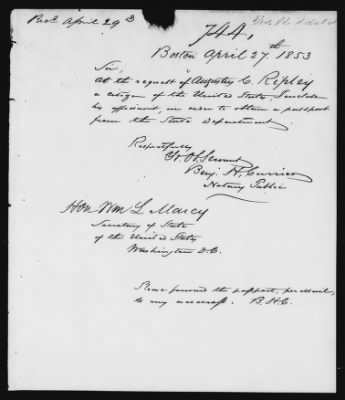 Recd April 29th
744,
Boston April 27th 1853
Sir,
At the request of Augustus C. Ripley
a citizen of the United States, I enclose
his affidavit, in order to obtain a passport
from the State Department.
Respectfully
Yr. Ob. Servant
Benj. H. Currier
Notary Public
Hon Wm L Marcy
Secretary of State
of the United States
Washington D.C.
Please forward the passport, per Mail,
to my . B.H.C.